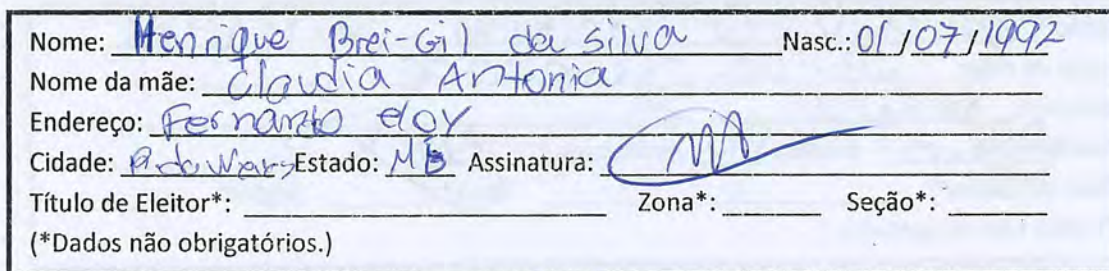 Nome: Henrique Brei-Gil da Silva Nasc.: 01/07/1992
Nome da mãe: Claudia Antonia
Endereço: Fernando eloy
Cidade: Estado: Assinatura:
Título de Eleitor*: Zona*: Seção*:
(*Dados não obrigatórios.)